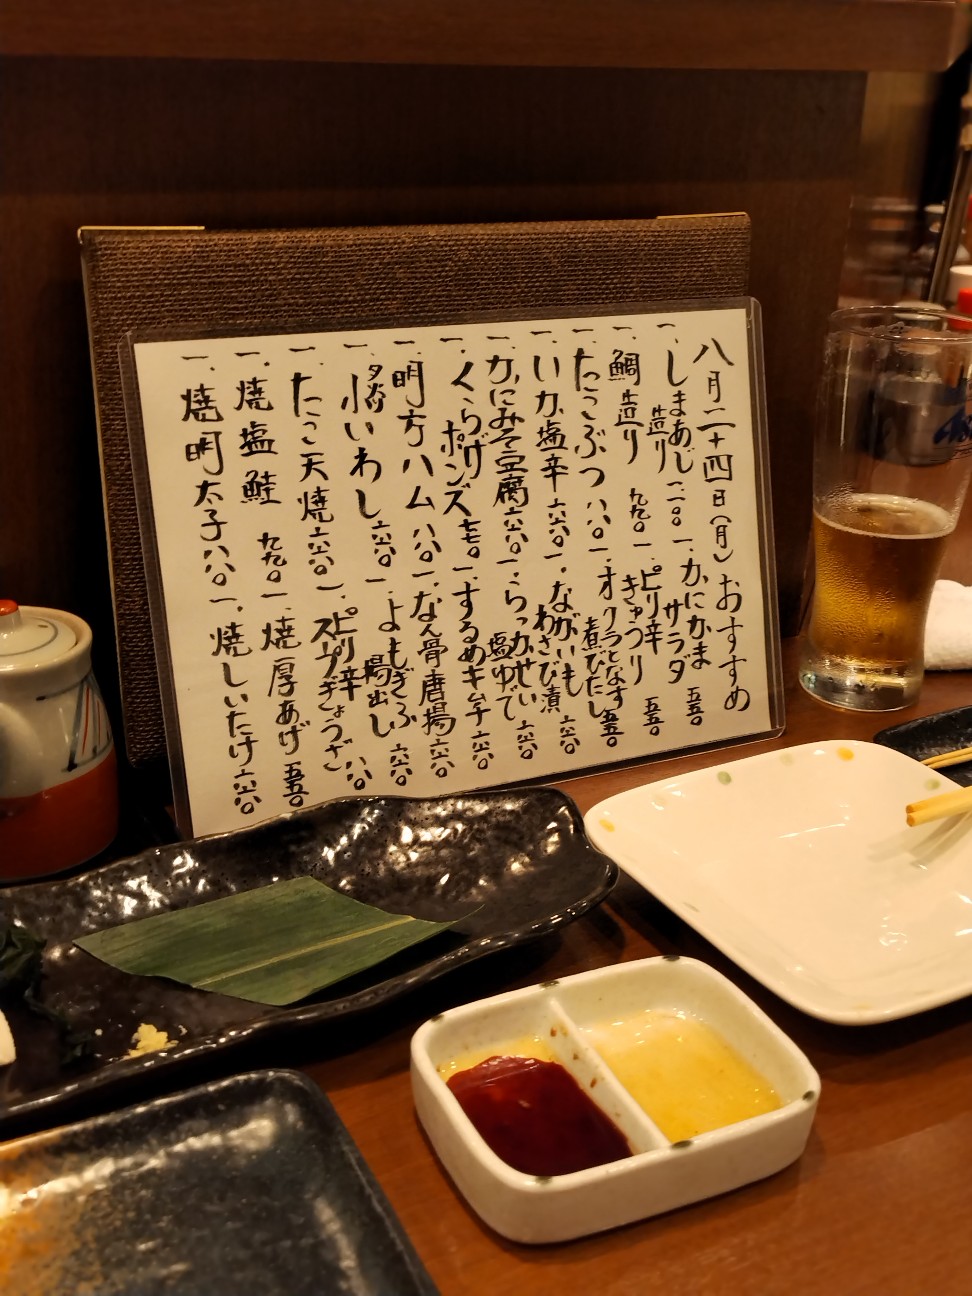 八月二十四日(月)おすすめ
一、しまあじ造り 一一〇〇
一、鯛造り 九九〇
一、たこぶつ 八八〇
一、いか塩辛 六六〇
一、かにみそ豆腐 六六〇
一、くらげポンズ 七七〇
一、明方ハム 八八〇
一、いわし 六六〇
一、たこ天焼 六六〇
一、焼塩鮭 九九〇
一、焼明太子 八八〇
一、かにかまサラダ 五五〇
一、ピリ辛きゅうり 五五〇
一、オクラとなす煮びたし 五五〇
一、ながいもわさび漬 六六〇
一、らっかせい塩ゆで 六六〇
一、するめキムチ 六六〇
一、なん骨唐揚 六六〇
一、よもぎふ揚出し 六六〇
一、ピリ辛スープぎょうざ 八八〇
一、焼厚あげ 五五〇
一、焼しいたけ 六六〇